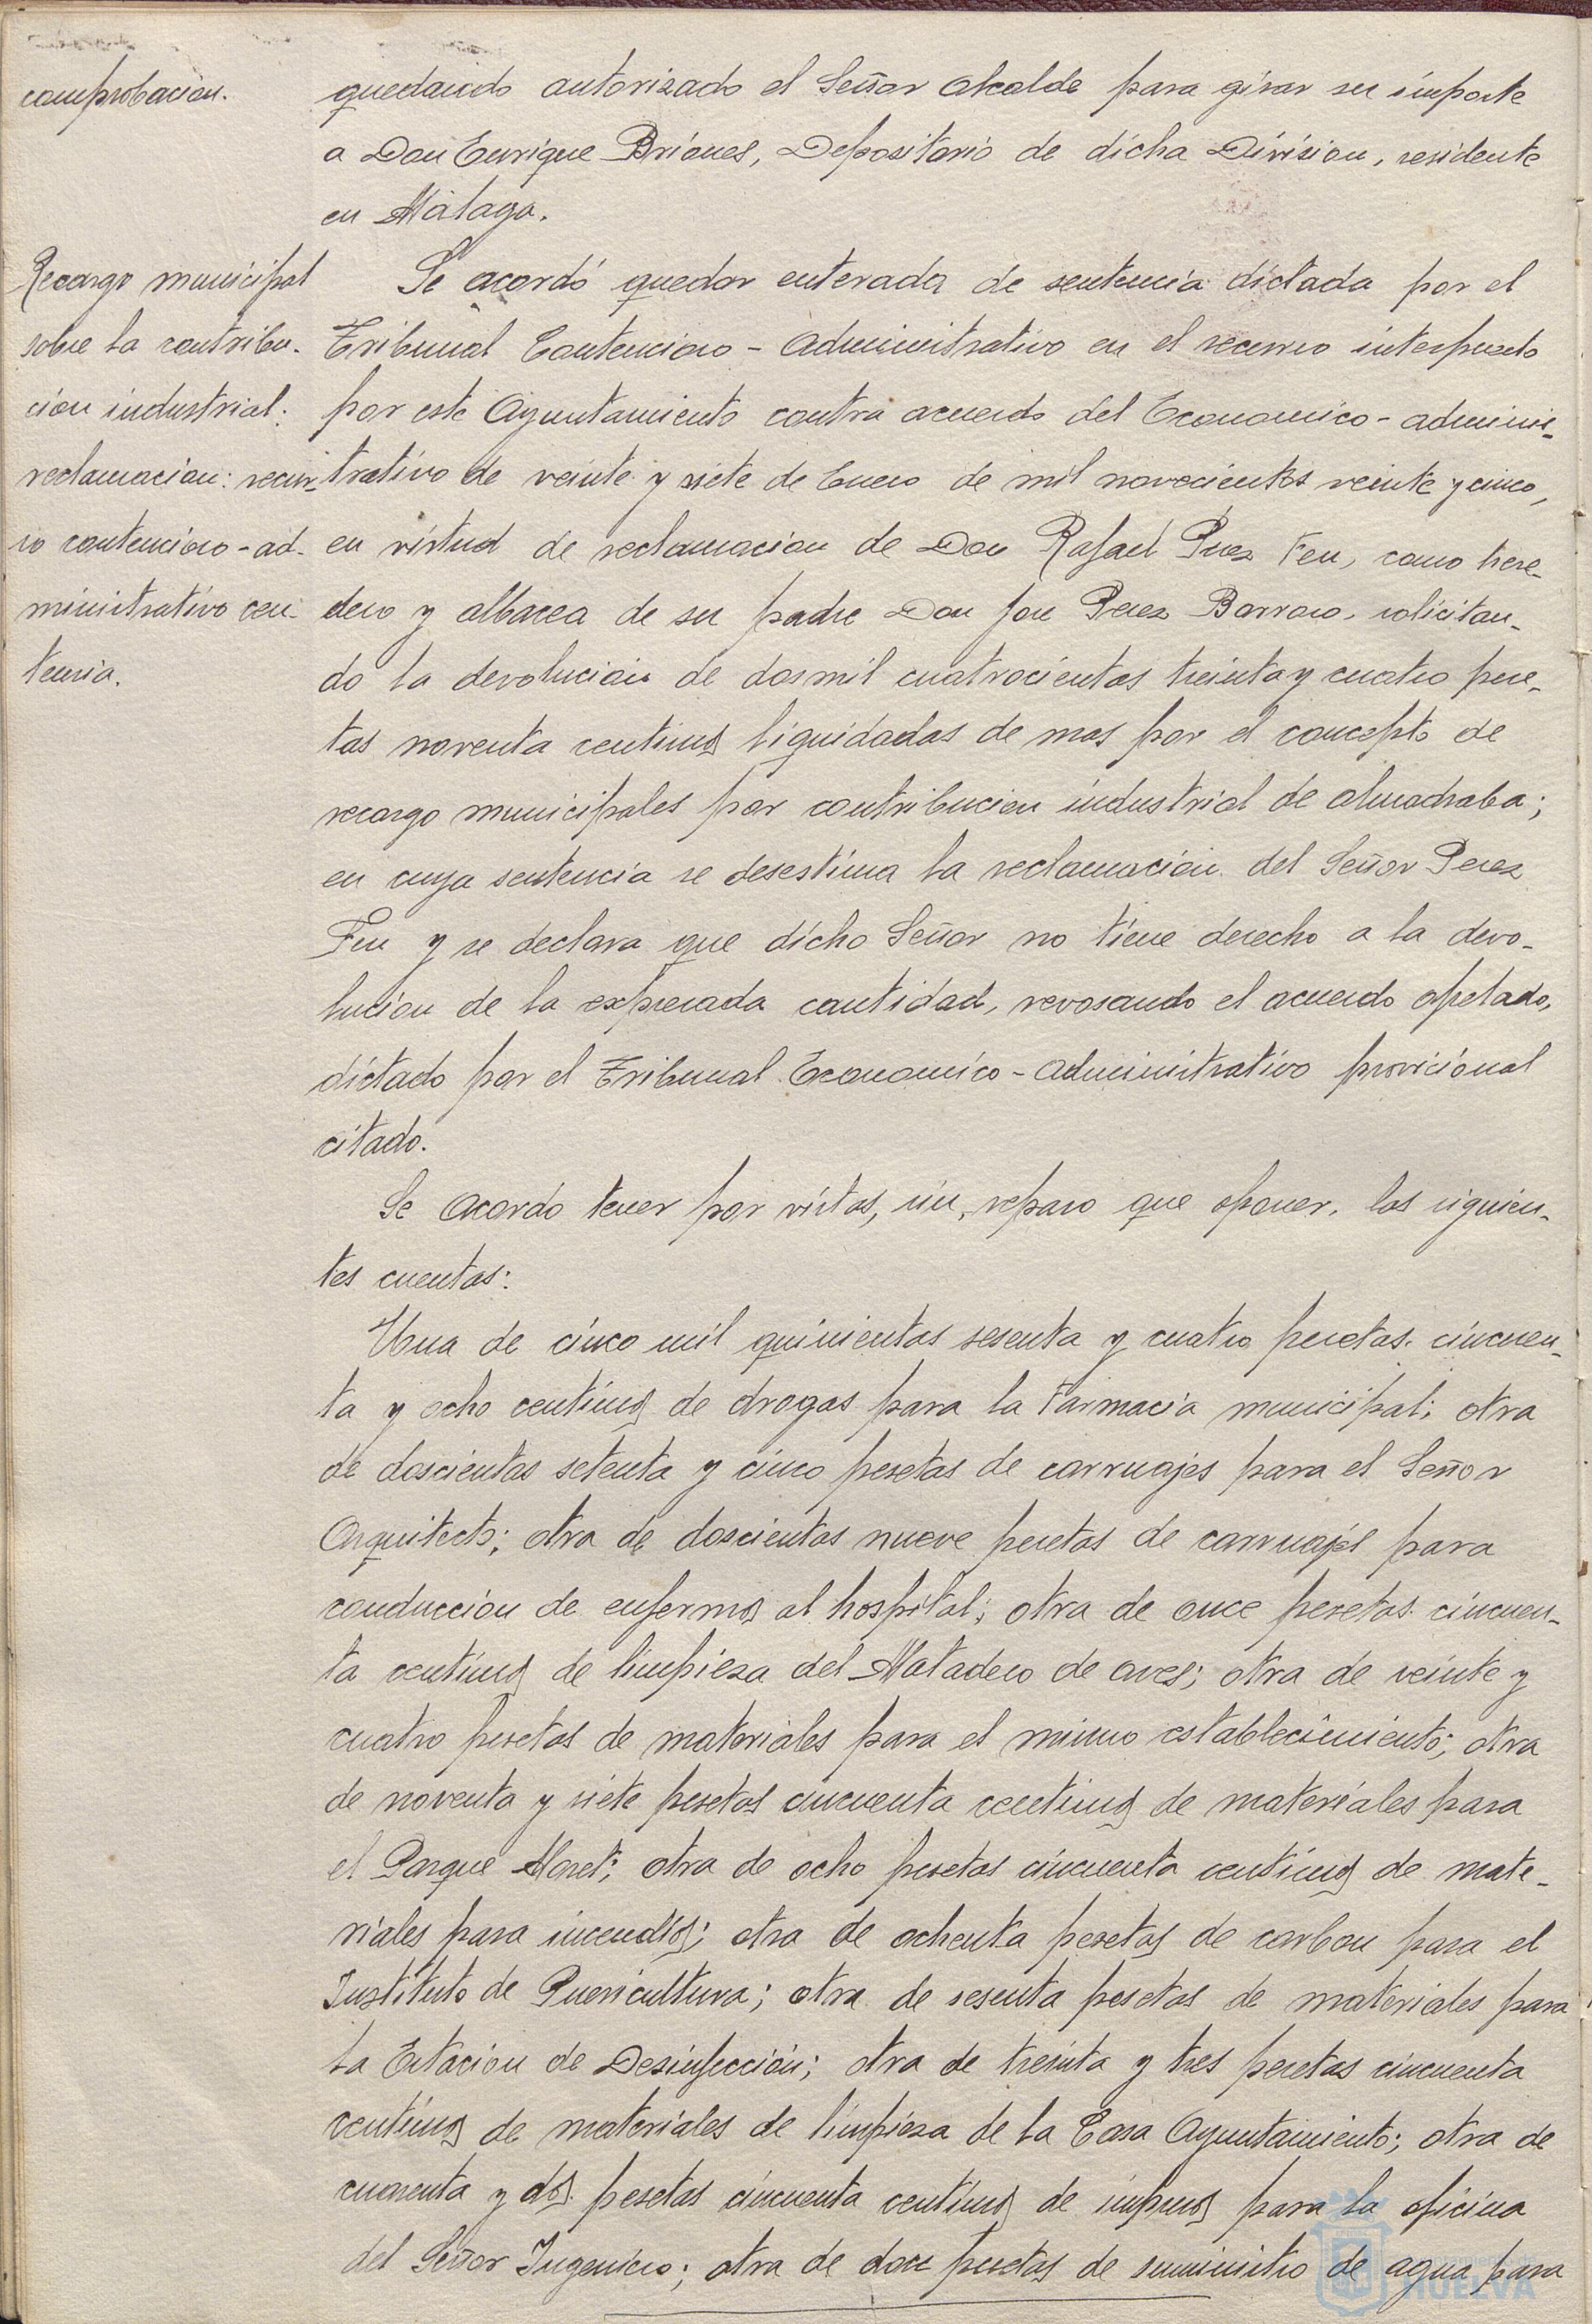 comprobacion.
quedando autorizado el Señor Alcalde para girar su importe
a Don Enrique Briones, Depositario de dicha Division, residente
en Málaga.
Recargo municipal
sobre la contribu-
cion industrial:
reclamacion: recur-
so contencioso-ad-
ministrativo sen-
tencia.
Se acordó quedar enterada de sentencia dictada por el
Tribunal Contencioso-Administrativo en el recurso interpuesto
por este Ayuntamiento contra acuerdo del Economico-adminis-
trativo de veinte y siete de Enero de mil novecientos veinte y cinco,
en virtud de reclamacion de Don Rafael Perez Feu, como here-
dero y albacea de su padre Don Jose Perez Barroso, solicitan-
do la devolucion de dos mil cuatrocientas treinta y cuatro pese-
tas noventa centimos liquidadas de mas por el concepto de
recargo municipales por contribucion industrial de almadraba;
en cuya sentencia se desestima la reclamacion del Señor Perez
Feu y se declara que dicho Señor no tiene derecho a la devo-
lucion de la expresada cantidad, revosando el acuerdo apelado,
dictado por el Tribunal Economico-Administrativo provicional
citado.
Se acordo tener por vistas, sin, reparo que oponer, las siguien-
tes cuentas:
Una de cinco mil quinientas sesenta y cuatro pesetas cincuen-
ta y ocho centimos de drogas para la Farmacia municipal; otra
de doscientas setenta y cinco pesetas de carruajes para el Señor
Arquitecto; otra de doscientas nueve pesetas de carruajes para
conduccion de enfermos al hospital; otra de once pesetas cincuen-
ta centimos de limpieza del Matadero de aves; otra de veinte y
cuatro pesetas de materiales para el mismo establecimiento; otra
de noventa y siete pesetas cincuenta centimos de materiales para
el Parque Moret; otra de ocho pesetas cincuenta centimos de mate-
riales para incendios; otra de ochenta pesetas de carbon para el
Instituto de Puericultura; otra de sesenta pesetas de materiales para
la Estacion de Desinfeccion; otra de treinta y tres pesetas cincuenta
centimos de materiales de limpieza de la Casa Ayuntamiento; otra de
cuarenta y dos pesetas cincuenta centimos de impresos para la oficina
del Señor Ingeniero; otra de doce pesetas de suministro de agua para
HUELVA